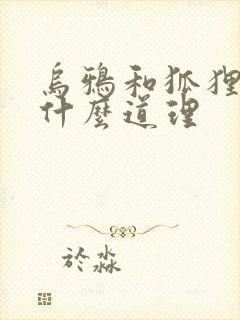 烏鴉和狐狸
什麼道理
於淼